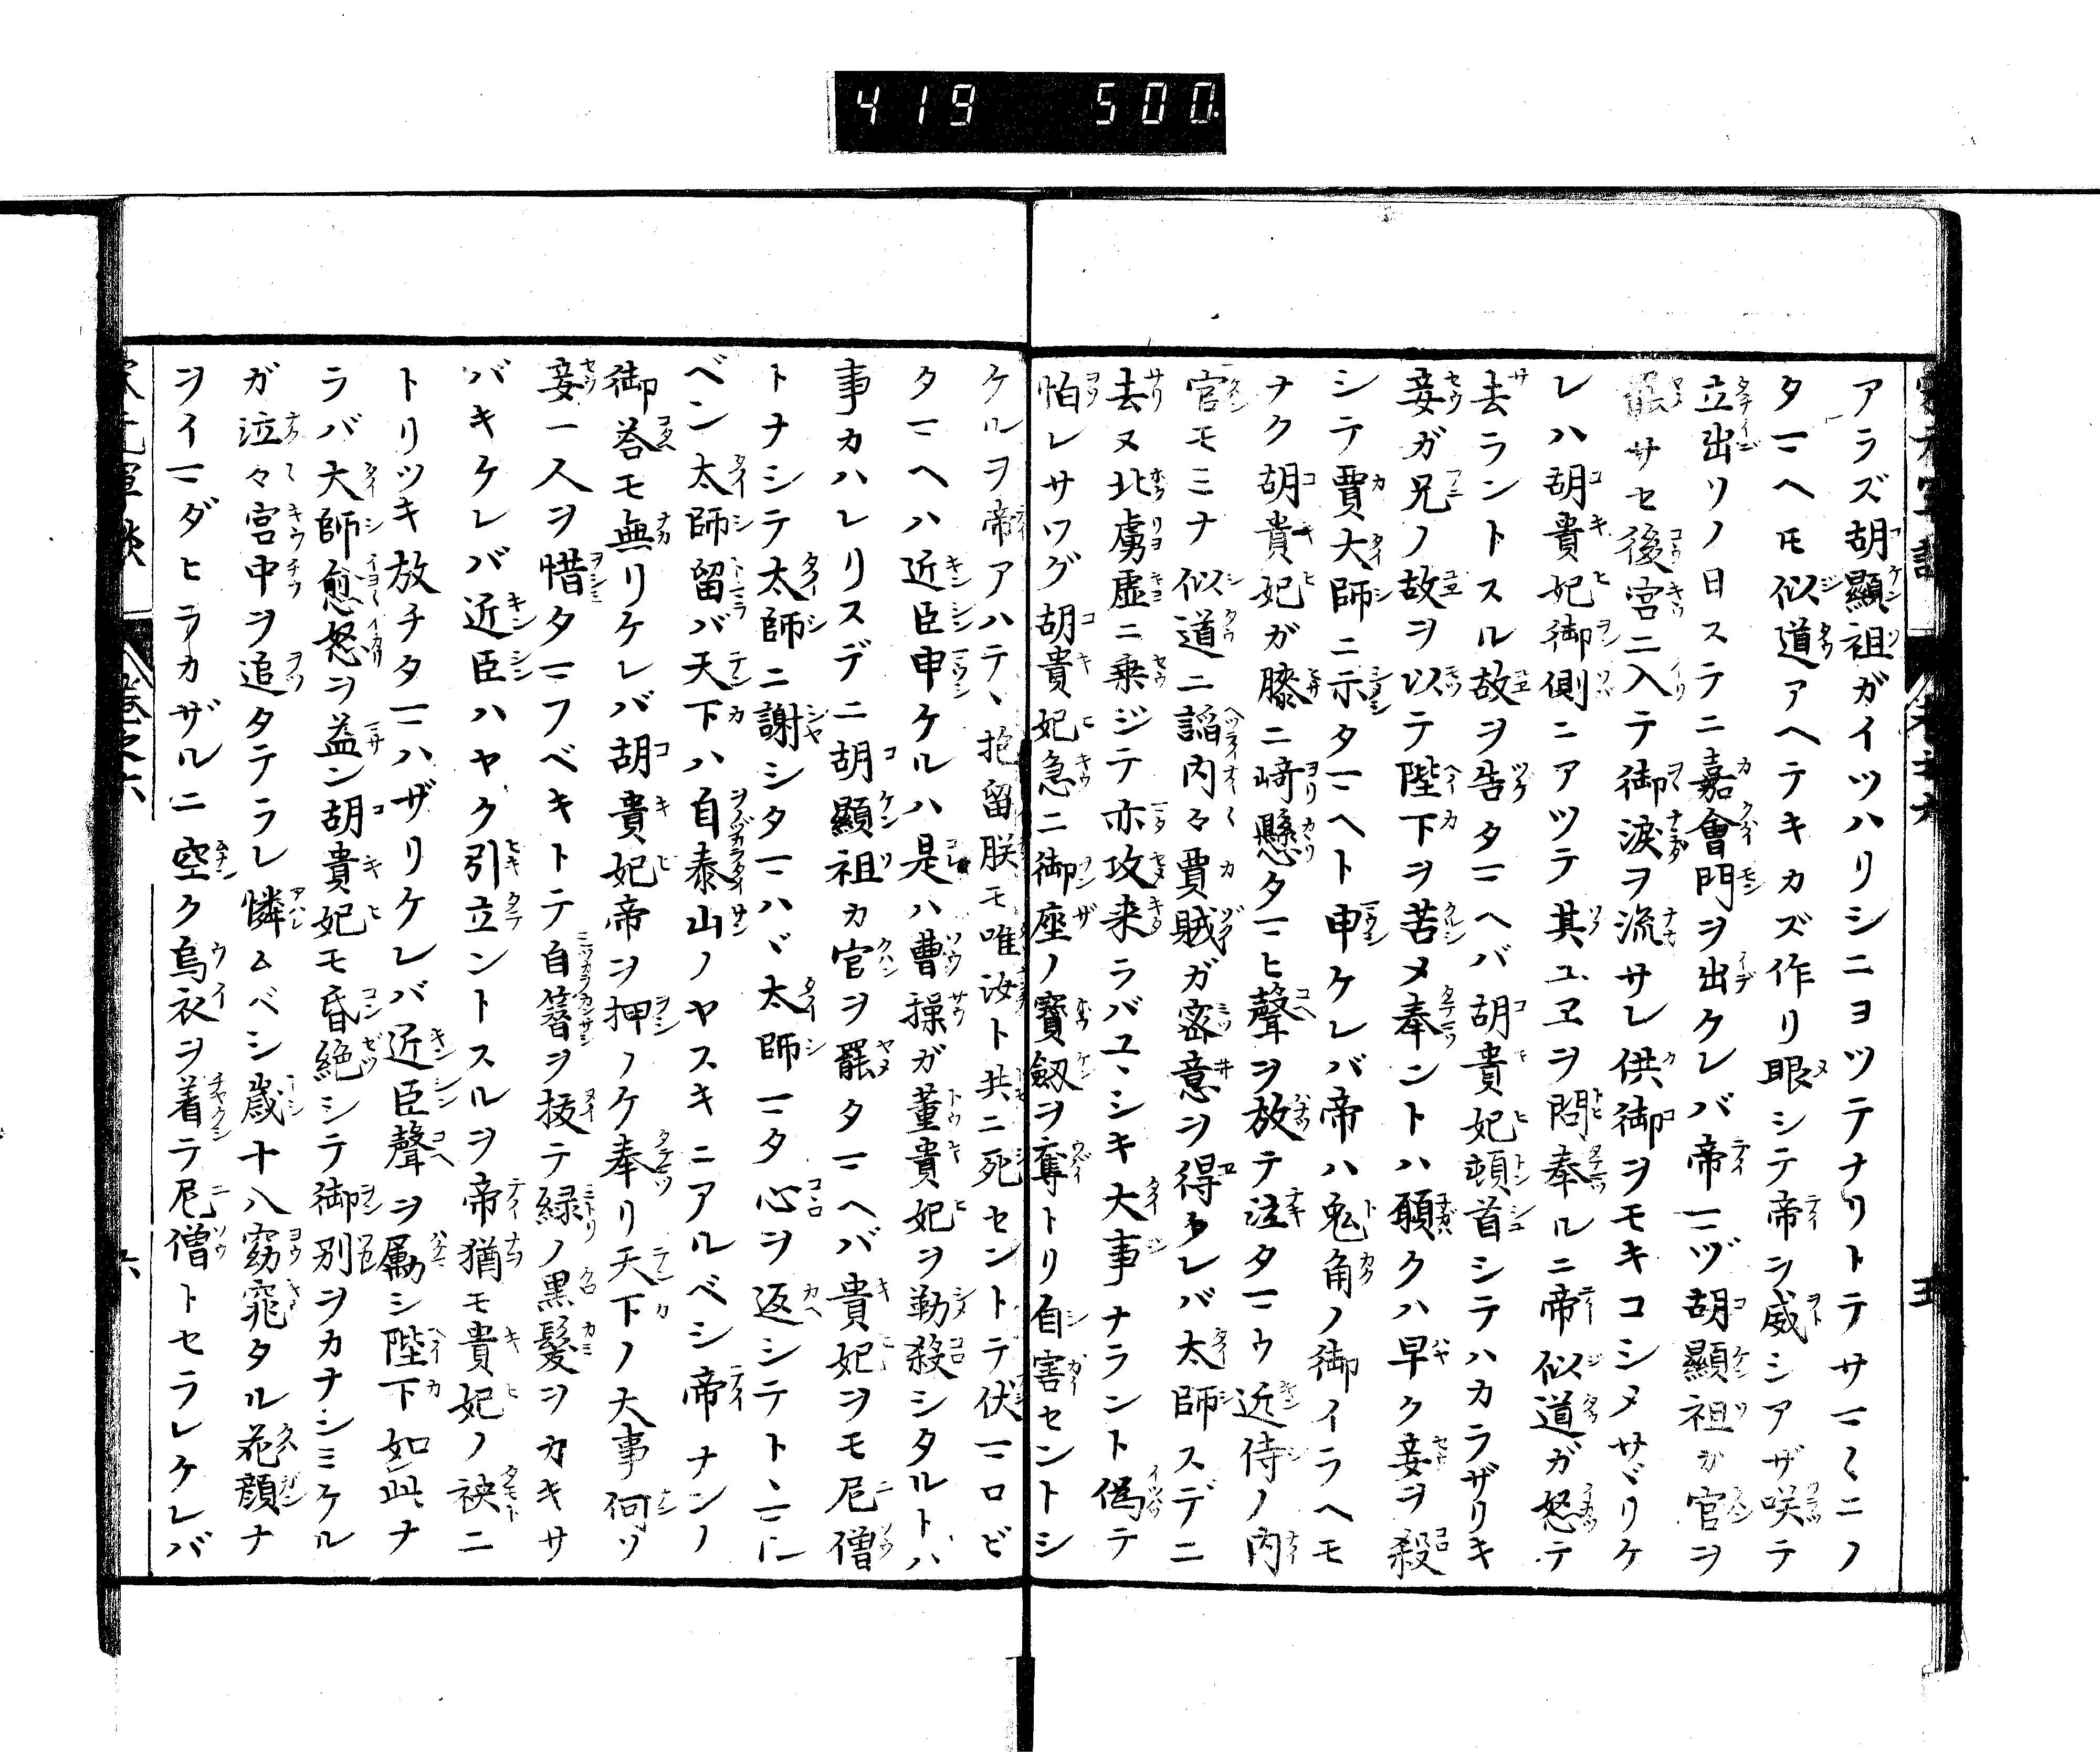 419 500
アラズ胡顯祖ガイツハリシニヨツテナリトテサマ〱ニノ
タマヘ𪜈似道アヘテキカズ作リ眼シテ帝ヲ威シアザ咲テ
立出ソノ日ステニ嘉會門ヲ出クレバ帝マヅ胡顯祖カ官ヲ
罷サセ後宮ニ入テ御淚ヲ流サレ供御ヲモキコシメサヾリケ
レハ胡貴妃御側ニアツテ其ユヱヲ問奉ルニ帝似道ガ怒テ
去ラントスル故ヲ告タマヘバ胡貴妃頓首シテハカラザリキ
妾ガ兄ノ故ヲ以テ陛下ヲ苦メ奉ントハ願クハ早ク妾ヲ殺
シテ賈大師ニ示タマヘト申ケレバ帝ハ兎角ノ御イラヘモ
ナク胡貴妃ガ膝ニ𠋣懸タマヒ聲ヲ放テ泣タマウ近侍ノ内
官モミナ似道ニ謟内々賈賊ガ密意ヲ得タレバ太師スデニ
去ヌ北虜虛ニ乗ジテ亦攻来ラバユヽシキ大事ナラント偽テ
怕レサワグ胡貴妃急ニ御座ノ寶劔ヲ奪トリ自害セントシ
ケルヲ帝アハテヽ抱留朕モ唯汝ト共ニ死セントテ伏マロビ
タマヘハ近臣申ケルハ是ハ曹操ガ董貴妃ヲ勒殺シタルトハ
事カハレリスデニ胡顯祖カ官ヲ罷タマヘバ貴妃ヲモ尼僧
トナシテ太師ニ謝シタマハヾ太師マタ心ヲ返シテトヽマル
ベシ太師留バ天下ハ自泰山ノヤスキニアルベシ帝ナンノ
御荅モ無リケレバ胡貴妃帝ヲ押ノケ奉リ天下ノ大事何ゾ
妾一人ヲ惜タマフベキトテ自簪ヲ抜テ緑ノ黒髮ヲカキサ
バキケレバ近臣ハヤク引立ントスルヲ帝猶モ貴妃ノ袂ニ
トリツキ放チタマハザリケレバ近臣聲ヲ勵シ陛下如此ナ
ラバ大師愈怒ヲ益ン胡貴妃モ昏絶シテ御別ヲカナシミケル
ガ泣々宮中ヲ追タテラレ憐ムベシ歳十八窈窕タル花顔ナ
ヲイマダヒラカザルニ空ク烏衣ヲ着テ尼僧トセラレケレバ